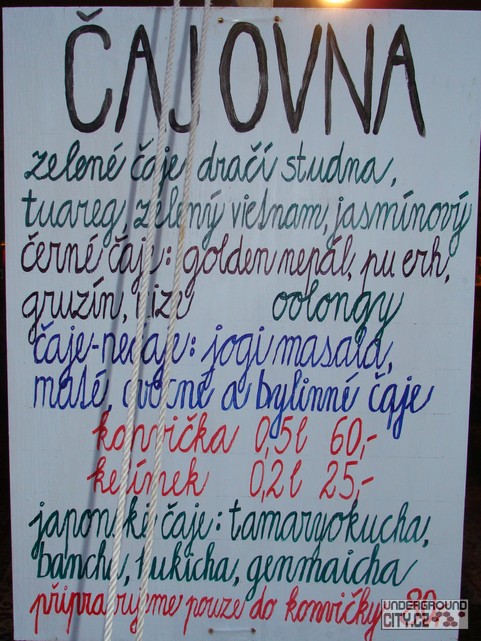 ČAJOVNA
zelené čaje dračí studna,
tuareg, zelený vietnam, jasmínový
černé čaje: golden nepál, pu erh,
gruzín, rize oolongy
čaje-nečaje: jogi masala,
maté, ovocné a bylinné čaje
konvička 0,5l 60,-
kelímek 0,2l 25,-
japonské čaje: tamaryokucha,
bancha, kukicha, genmaicha
připravujeme pouze do konvičky 80,-
UNDERGROUND
CITY.CZ